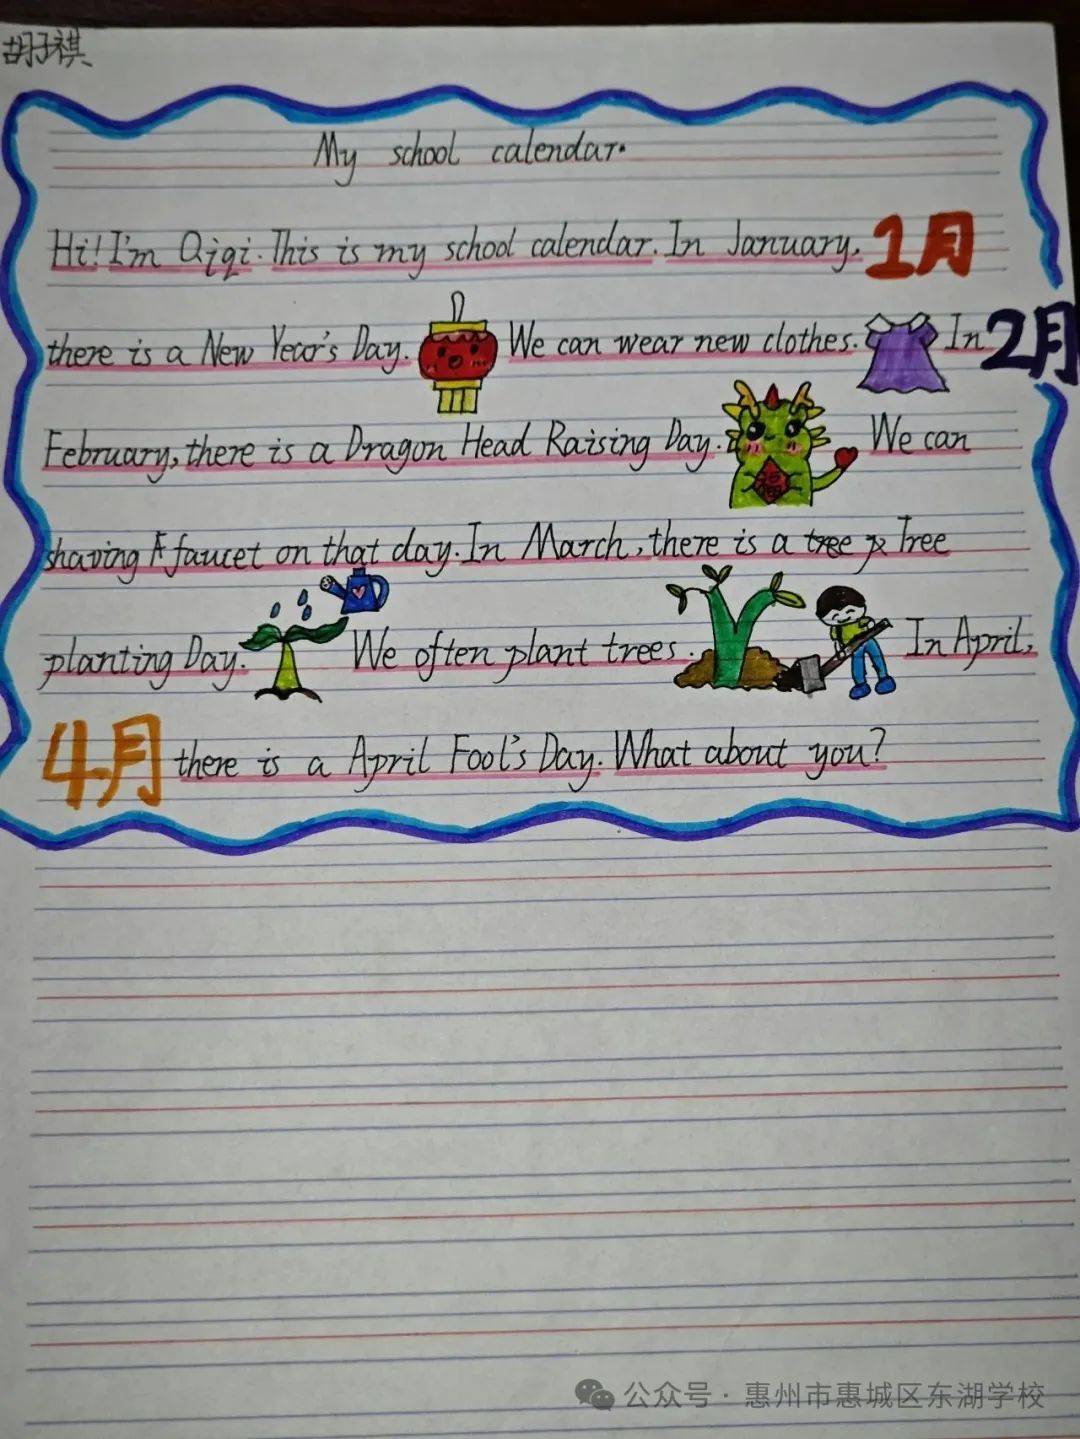 胡子祺
My school calendar.
Hi! I'm Qiqi. This is my school calendar. In January, 1月
there is a New Year's Day. We can wear new clothes. In 2月
February, there is a Dragon Head Raising Day. We can
福
shaving faucet on that day. In March, there is a tree Tree
planting Day. We often plant trees. In April,
4月 there is a April Fool's Day. What about you?
公众号 · 惠州市惠城区东湖学校